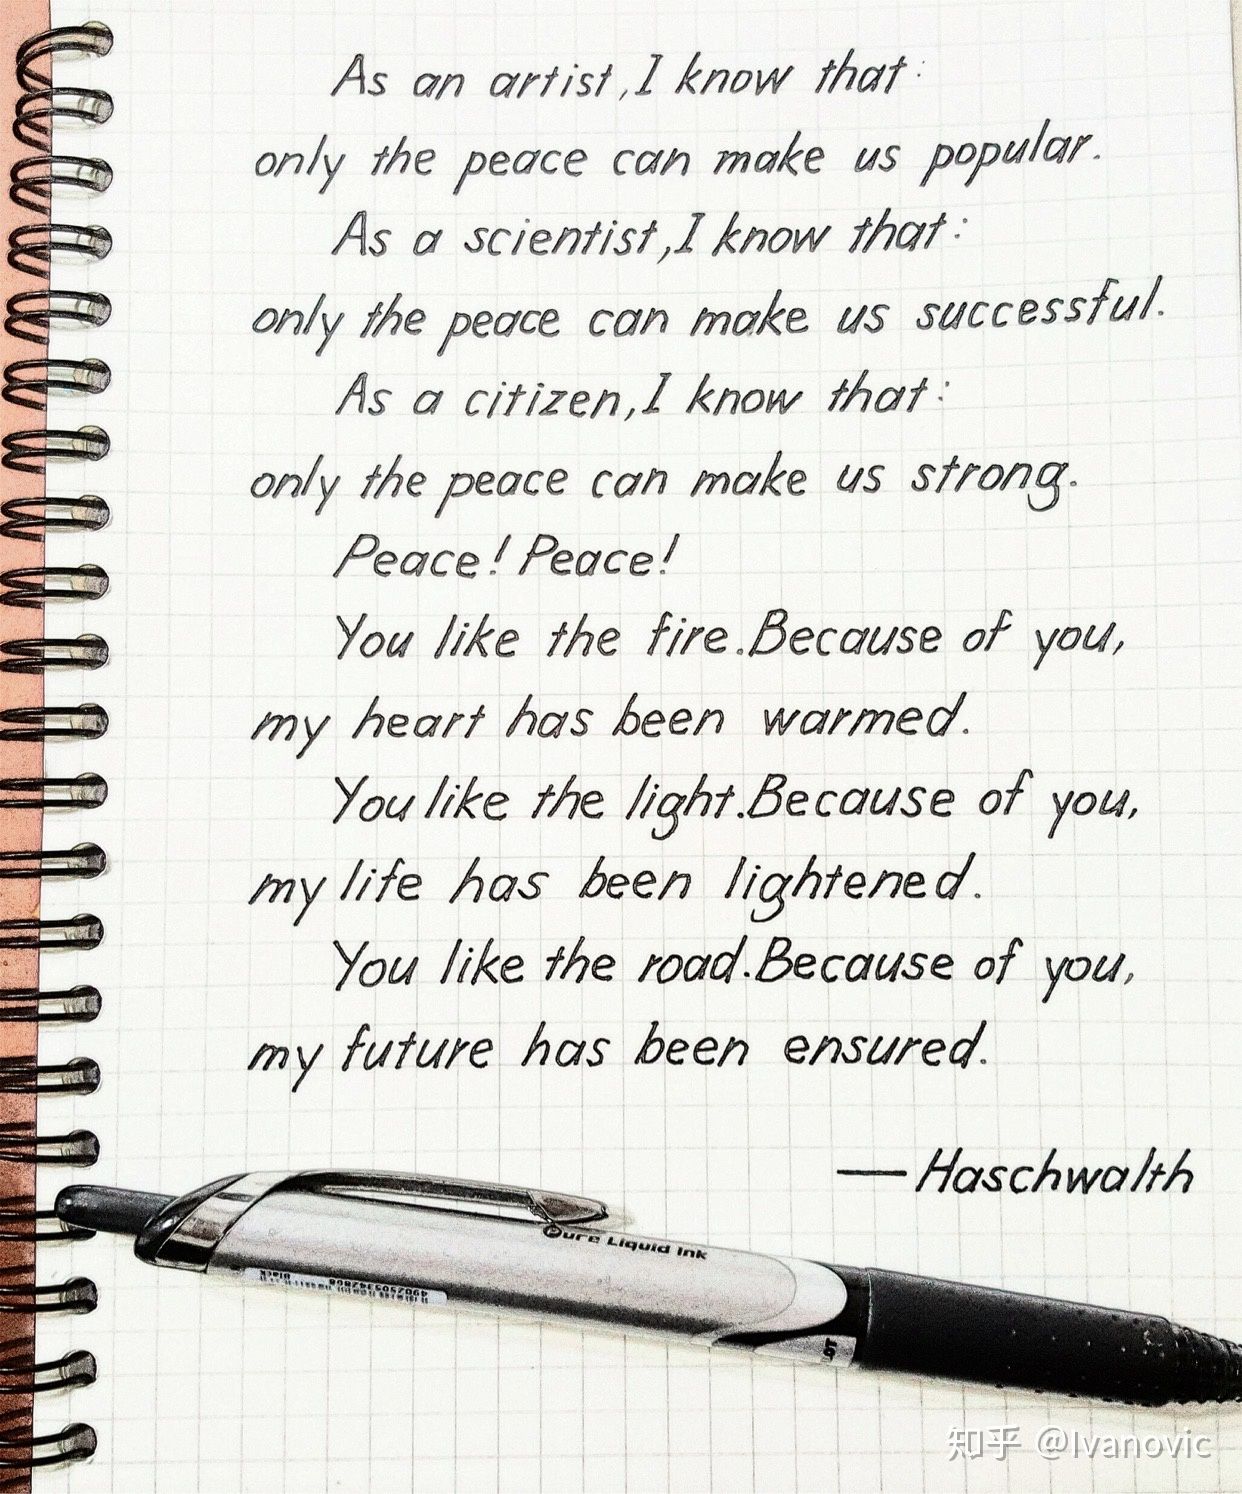 As an artist,I know that:
only the peace can make us popular.
As a scientist,I know that:
only the peace can make us successful.
As a citizen,I know that:
only the peace can make us strong.
Peace! Peace!
You like the fire.Because of you,
my heart has been warmed.
You like the light.Because of you,
my life has been lightened.
You like the road.Because of you,
my future has been ensured.
—Haschwalth
Pure Liquid Ink
知乎 @Ivanovic